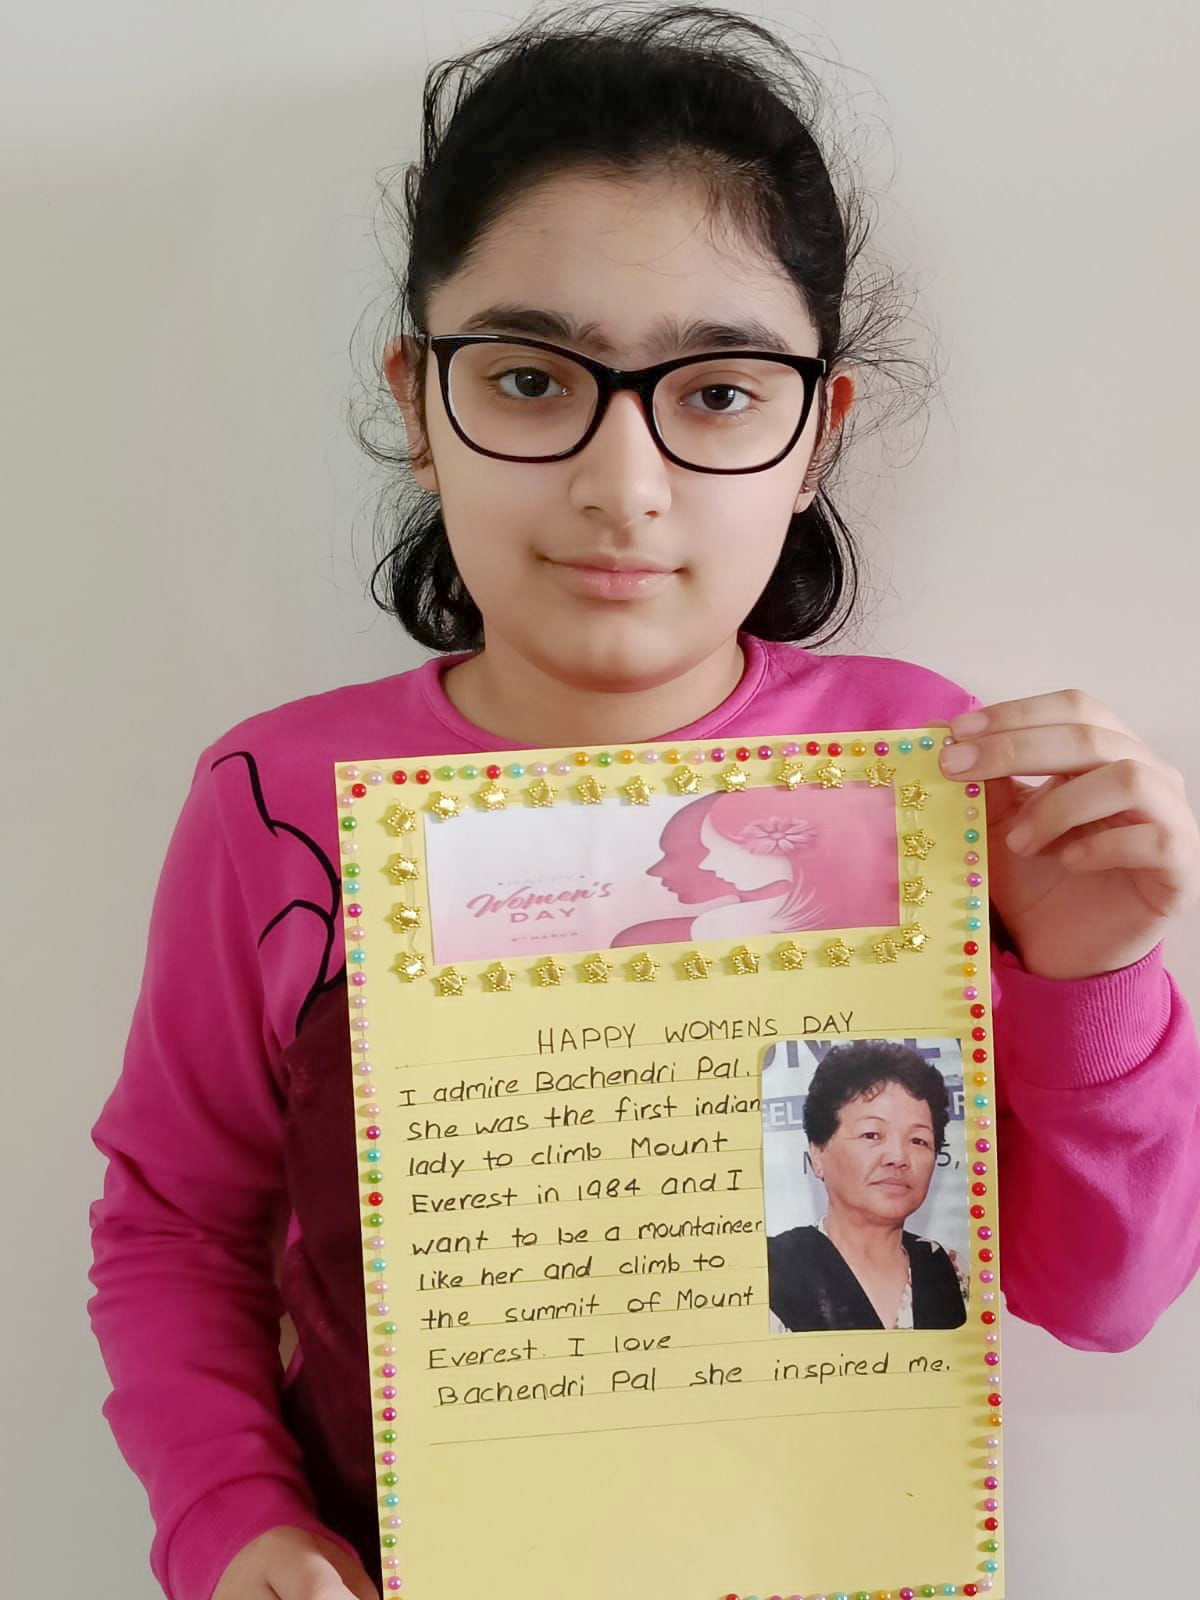 Women's
DAY
HAPPY WOMENS DAY
I admire Bachendri Pal.
She was the first indian
lady to climb Mount
Everest in 1984 and I
want to be a mountaineer
like her and climb to
the summit of Mount
Everest. I love
Bachendri Pal she inspired me.